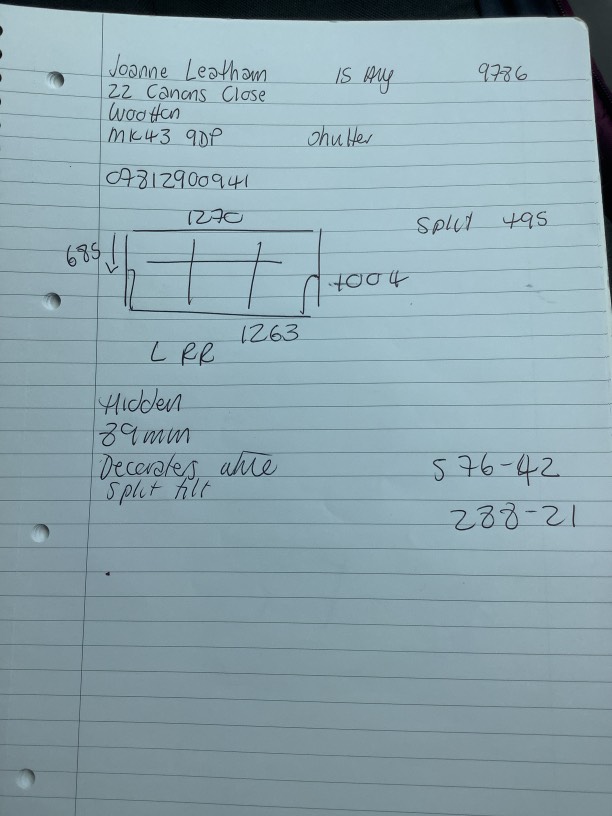 Joanne Leatham 15 Aug 9786
22 Canons Close
Wootton
MK43 9DP Shutter
07812900941
1270
Split 495
685
1004
1263
L RR
Hidden
89mm
Decorators white
Split tilt
576-42
288-21